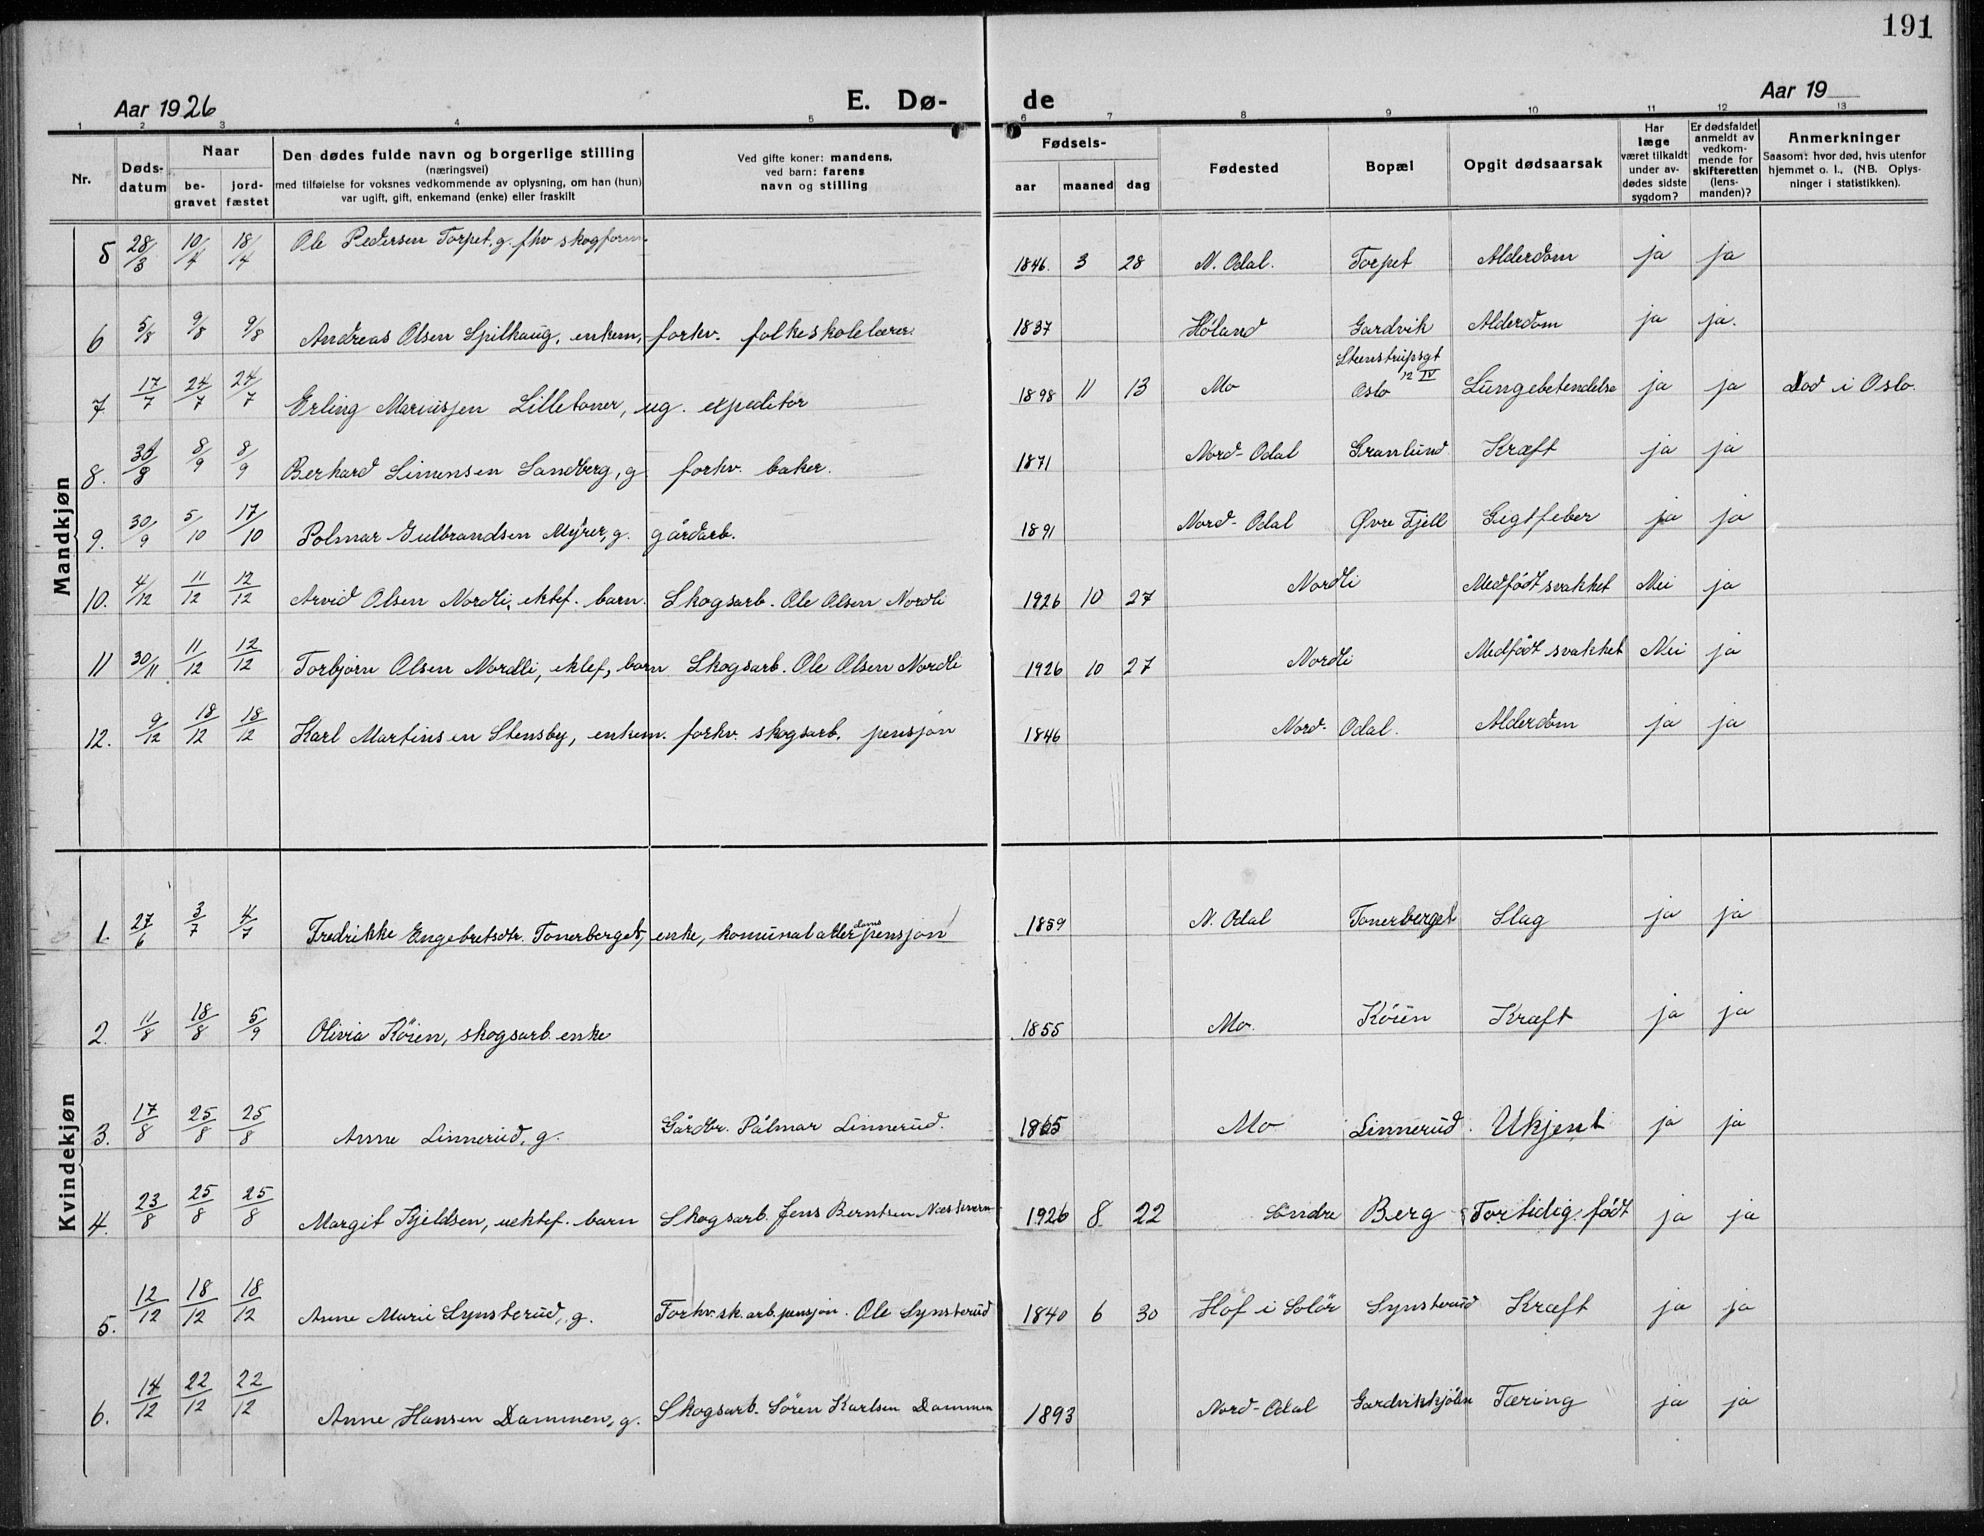 191
Aar 1926
E. Dø-
de
Aar 19
1 2 3 4 5 6 7 8 9 10 11 12 13
Nr.
Døds-
datum
Naar
be-
gravet
jord-
fæstet
Den dødes fulde navn og borgerlige stilling
(næringsvei)
med tilføielse for voksnes vedkommende av oplysning, om han (hun)
var ugift, gift, enkemand (enke) eller fraskilt
Ved gifte koner: mandens,
ved barn: farens
navn og stilling
Fødsels-
aar maaned dag
Fødested
Bopæl
Opgit dødsaarsak
Har
læge
været tilkaldt
under av-
dødes sidste
sygdom?
Er dødsfaldet
anmeldt av
vedkom-
mende for
skifteretten
(lens-
manden)?
Anmerkninger
Saasom: hvor død, hvis utenfor
hjemmet o. l., (NB. Oplys-
ninger i statistikken).
Mandkjøn
5 28/3 10/4 18/4 Ole Pedersen Torpet, g. fhv skogform. 1846. 3 28 N. Odal. Torpet Alderdom ja ja
6 5/8 9/8 9/8 Andreas Olsen Spilhaug, enkem, forhv. folkeskolelærer. 1837 Høland Gardvik Alderdom ja ja.
Stenstrupsgt
12 IV
7 17/7 24/7 24/7 Erling Mariusjen Lilletoner, ug. expeditør 1898 11 13 Mo Oslo Lungebetendelse ja ja Død i Oslo.
8. 30/8 8/9 8/9 Berhard Simensen Sandberg, g forhv. baker. 1871 Nord-Odal Granlund Kræft ja ja
9. 30/9 5/10 17/10 Polmar Gulbrandsen Myrer, g. gårdarb. 1891 Nord-Odal Øvre Fjell Gigtfeber ja ja
10. 4/12 11/12 12/12 Arvid Olsen Nordli, ektef. barn. Skogsarb. Ole Olsen Nordli 1926 10 27 Nordli Medfødt svakhet Nei ja
11 30/11 11/12 12/12 Torbjørn Olsen Nordli, ektef, barn Skogsarb. Ole Olsen Nordli 1926 10 27 Nordli Medfødt svakhet Nei ja
12. 9/12 18/12 18/12 Karl Martinsen Stensby, enkem. forhv. skogsarb. pensjon 1846 Nord-Odal. Alderdom ja ja
Kvindekjøn
1. 27/6 3/7 4/7 Fredrikke Engebretsdtr. Tonerberget, enke, komunal alderdoms pensjon 1859 N. Odal Tonerberget Slag ja ja
2. 11/8 18/8 5/9 Olivia Köien, skogsarb. enke 1855 Mo. Köien Kræft ja ja
3. 17/8 25/8 25/8 Anne Linnerud, g. Gårdbr. Pálmar Linnerud. 1865 Mo Linnerud. Ukjent ja ja
4. 23/8 25/8 25/8 Margit Kjeldsen, uektef. barn Skogsarb. Jens Berntsen 1926 8 22 Söndre Berg Fortidig født ja ja
5. 12/12 18/12 18/12 Anne Marie Synsterud, g. Forhv. sk. arb. pensjon. Ole Synsterud 1840 6 30 Hof i Solör Synsterud Kræft ja ja
6. 14/12 22/12 22/12 Anne Hansen Dammen, g. Skogsarb. Sören Karlsen Dammen 1893 Nord-Odal Gardvikkjölen Tæring ja ja